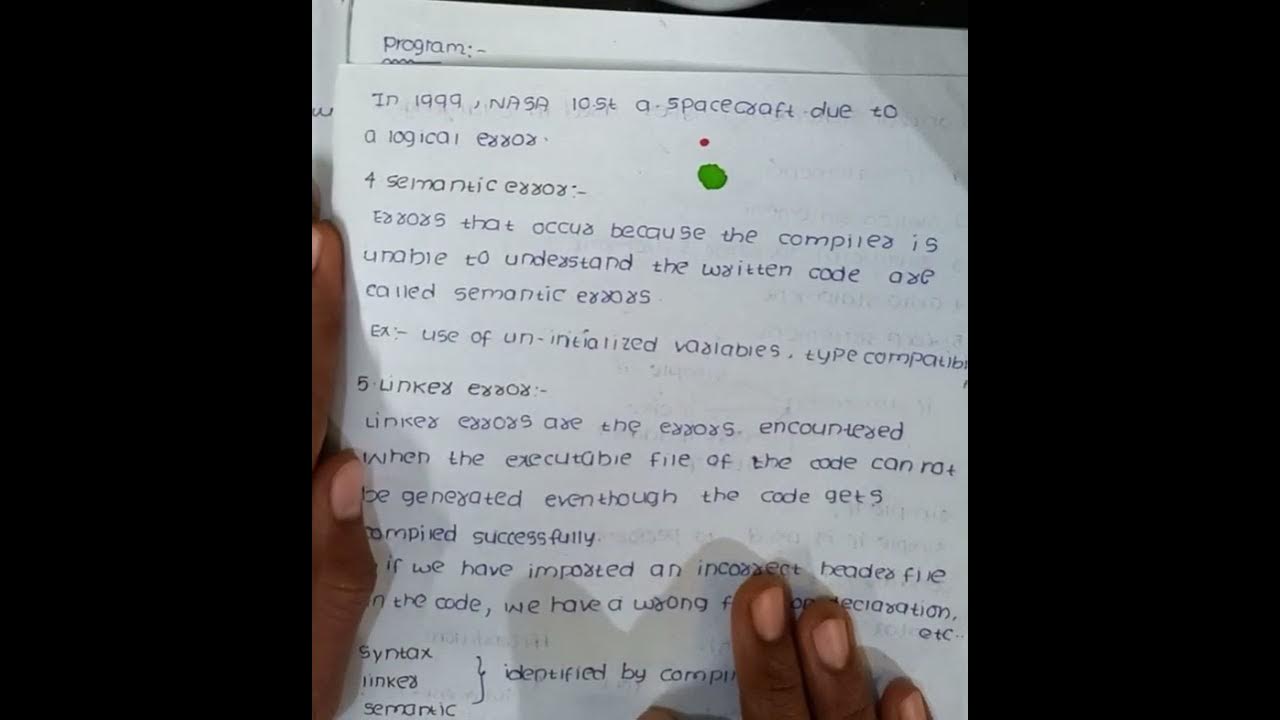 Program:-
In 1999, NASA lost a spacecraft due to
a logical error.
4 semantic error:-
Errors that occur because the compiler is
unable to understand the written code are
called semantic errors.
Ex:- use of un-initialized variables, type compatibi
5. Linker error:-
Linker errors are the errors encountered
when the executable file of the code can not
be generated eventhough the code gets
compiled successfully.
if we have imported an incorrect header file
in the code, we have a wrong declaration,
etc..
syntax
linker
semantic
} identified by